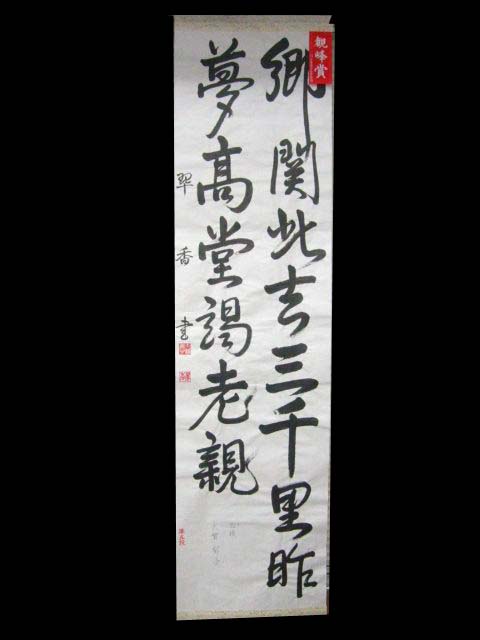 観峰賞
鄉関此去三千里昨
夢高堂謁老親
翠香書